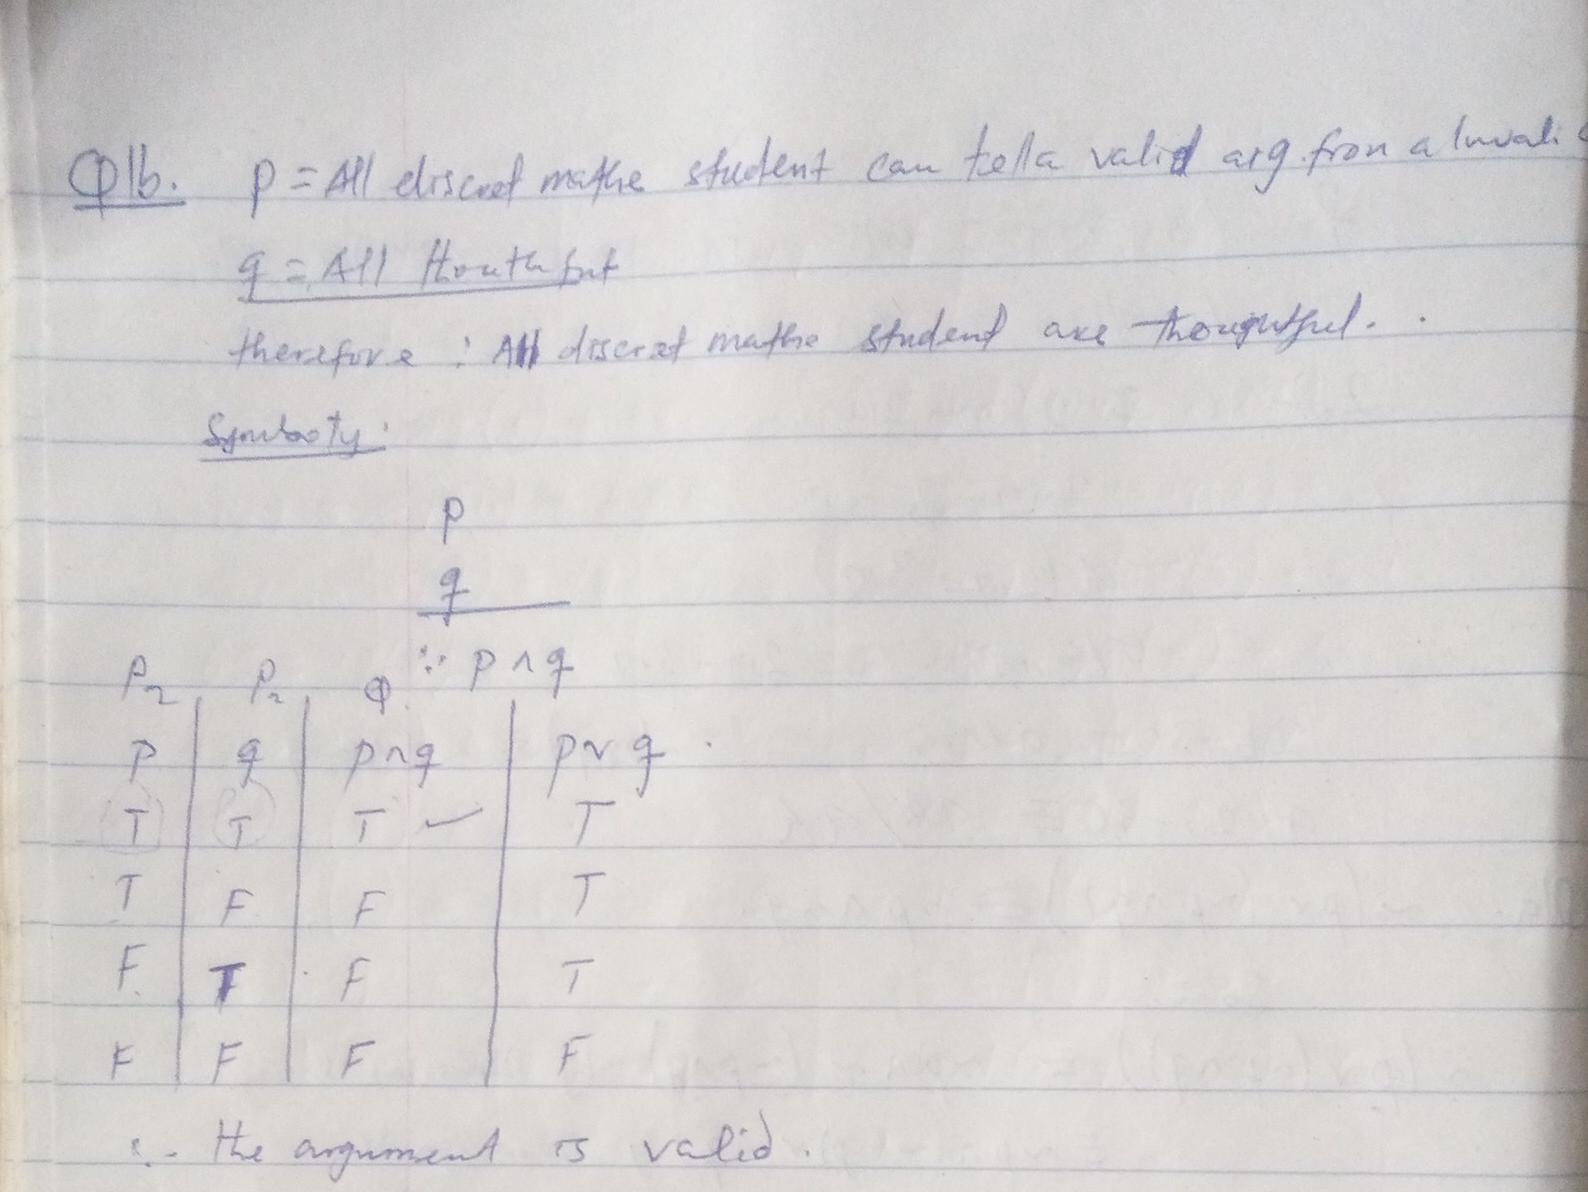 Q1b. p = All discret mathe student can tell a valid arg. from a Invali
q = All thouthfut
therefore : All discret mathe student are thoughtful.
Symboty:
p
q
∵ p ∧ q
P₂ P₂ Q
p q p∧q p∨q
T T T ✓ T
T F F T
F T F T
F F F F
∴ the argument is valid.